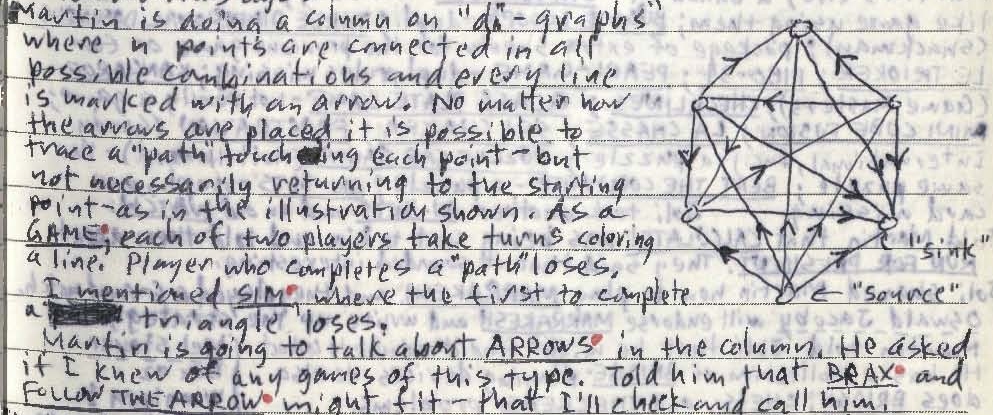 Martin is doing a column on "di"-graphs"
where n points are connected in all
possible combinations and every line
is marked with an arrow. No matter how
the arrows are placed it is possible to
trace a "path" touching each point - but
not necessarily returning to the starting
point - as in the illustration shown. As a
GAME, each of two players take turns coloring
a line. Player who completes a "path" loses.
I mentioned SIM where the first to complete
a triangle loses.
Martin is going to talk about ARROWS in the column. He asked
if I knew of any games of this type. Told him that BRAX and
FOLLOW THE ARROW might fit - that I'll check and call him.
"sink"
"source"